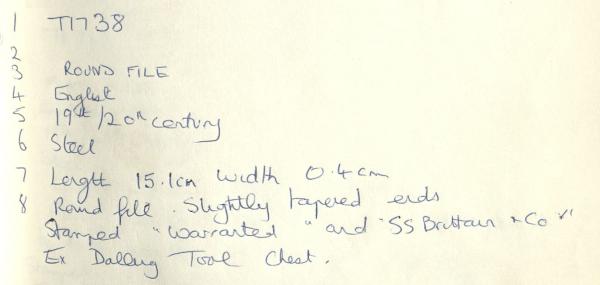 1 T1738
2
3 ROUND FILE
4 English
5 19th/20th century
6 Steel
7 Length 15.1cm width 0.4cm
8 Round file. Slightly tapered ends
Stamped "Warranted" and "SS Brittain & Co"
Ex Tool Chest.